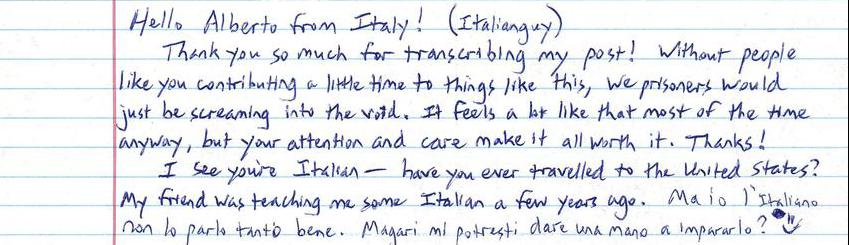 Hello Alberto from Italy! (Italianguy)
Thank you so much for transcribing my post! Without people
like you contributing a little time to things like this, we prisoners would
just be screaming into the void. It feels a lot like that most of the time
anyway, but your attention and care make it all worth it. Thanks!
I see you're Italian — have you ever travelled to the United States?
My friend was teaching me some Italian a few years ago. Ma io l'Italiano
non lo parlo tanto bene. Magari mi potresti dare una mano a impararlo?